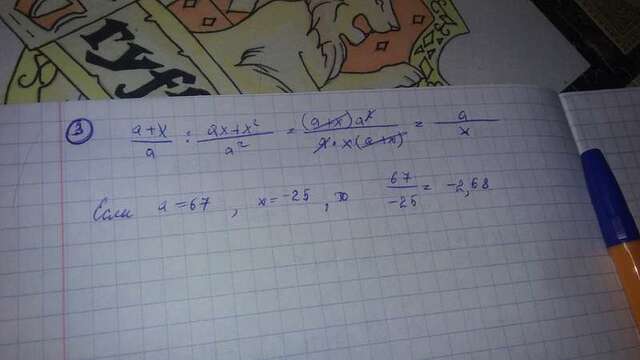 ryfi
③ (a+x)/a : (ax+x²)/a² = ((a+x)a²)/(a·x(a+x)) = a/x
Если a=67, x=-25, то 67/-25 = -2,68